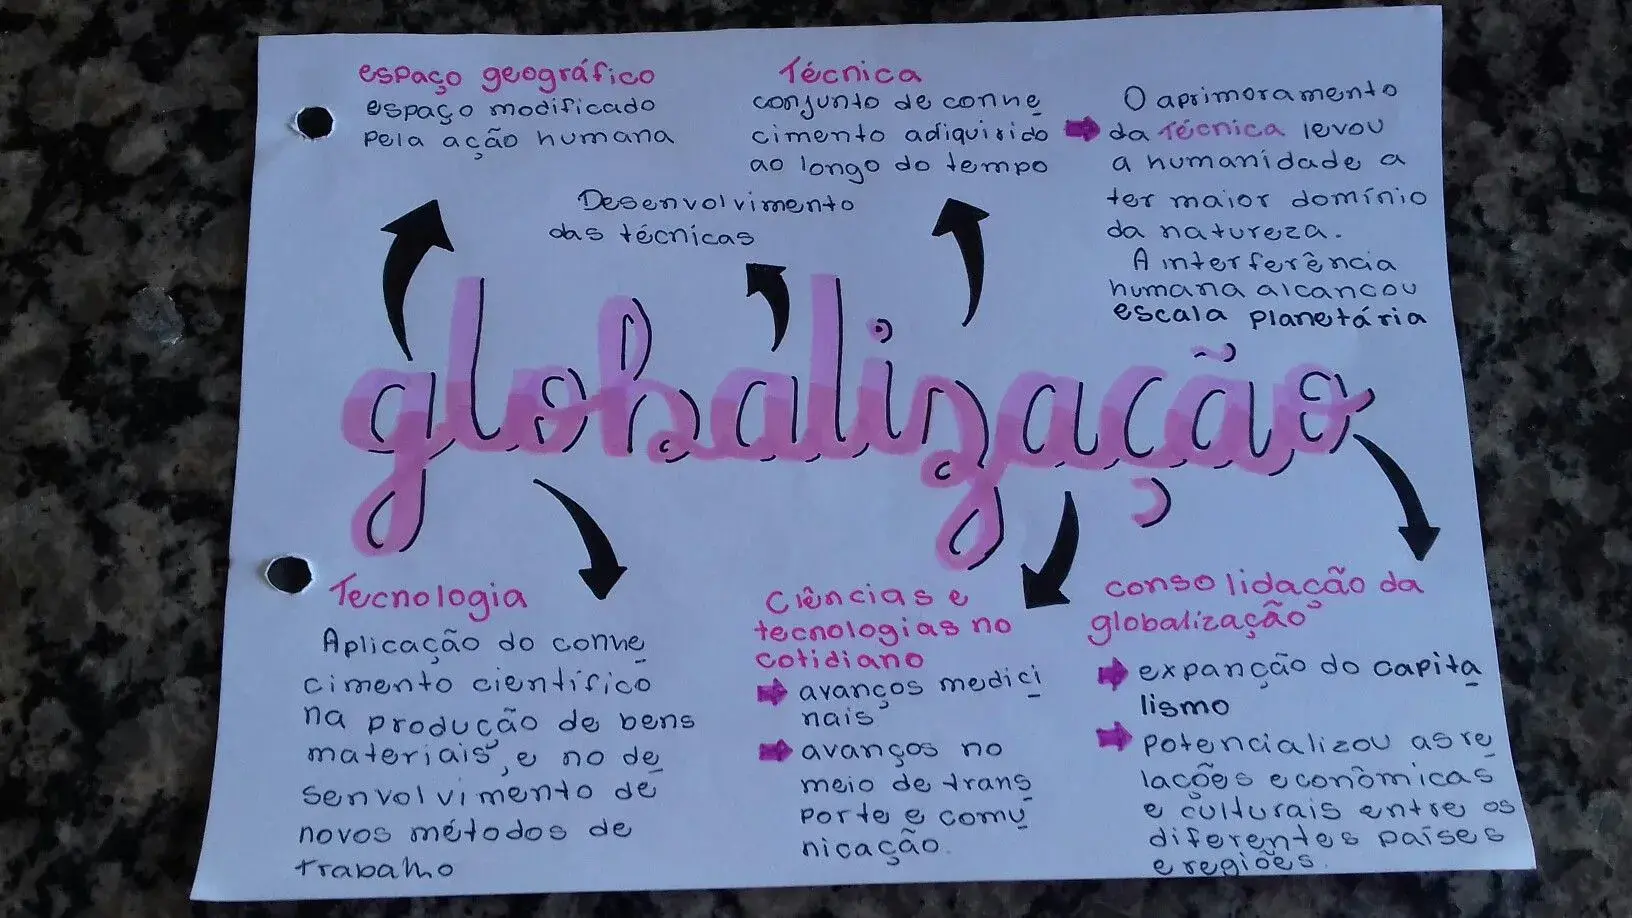 espaço geográfico
espaço modificado
pela ação humana
Técnica
conjunto de conhe
cimento adiquirido
ao longo do tempo
O aprimoramento
da técnica levou
a humanidade a
ter maior domínio
da natureza.
A interferência
humana alcancou
escala planetária
Desenvolvimento
das técnicas
globalização
Tecnologia
Aplicação do conhe
cimento científico
na produção de bens
materiais, e no de
senvolvimento de
novos métodos de
trabalho
Ciências e
tecnologias no
cotidiano
avanços medici
nais
avanços no
meio de trans
porte e comu
nicação.
consolidação da
globalização
expanção do capita
lismo
potencializou as re
lações econômicas
e culturais entre os
diferentes países
e regiões.